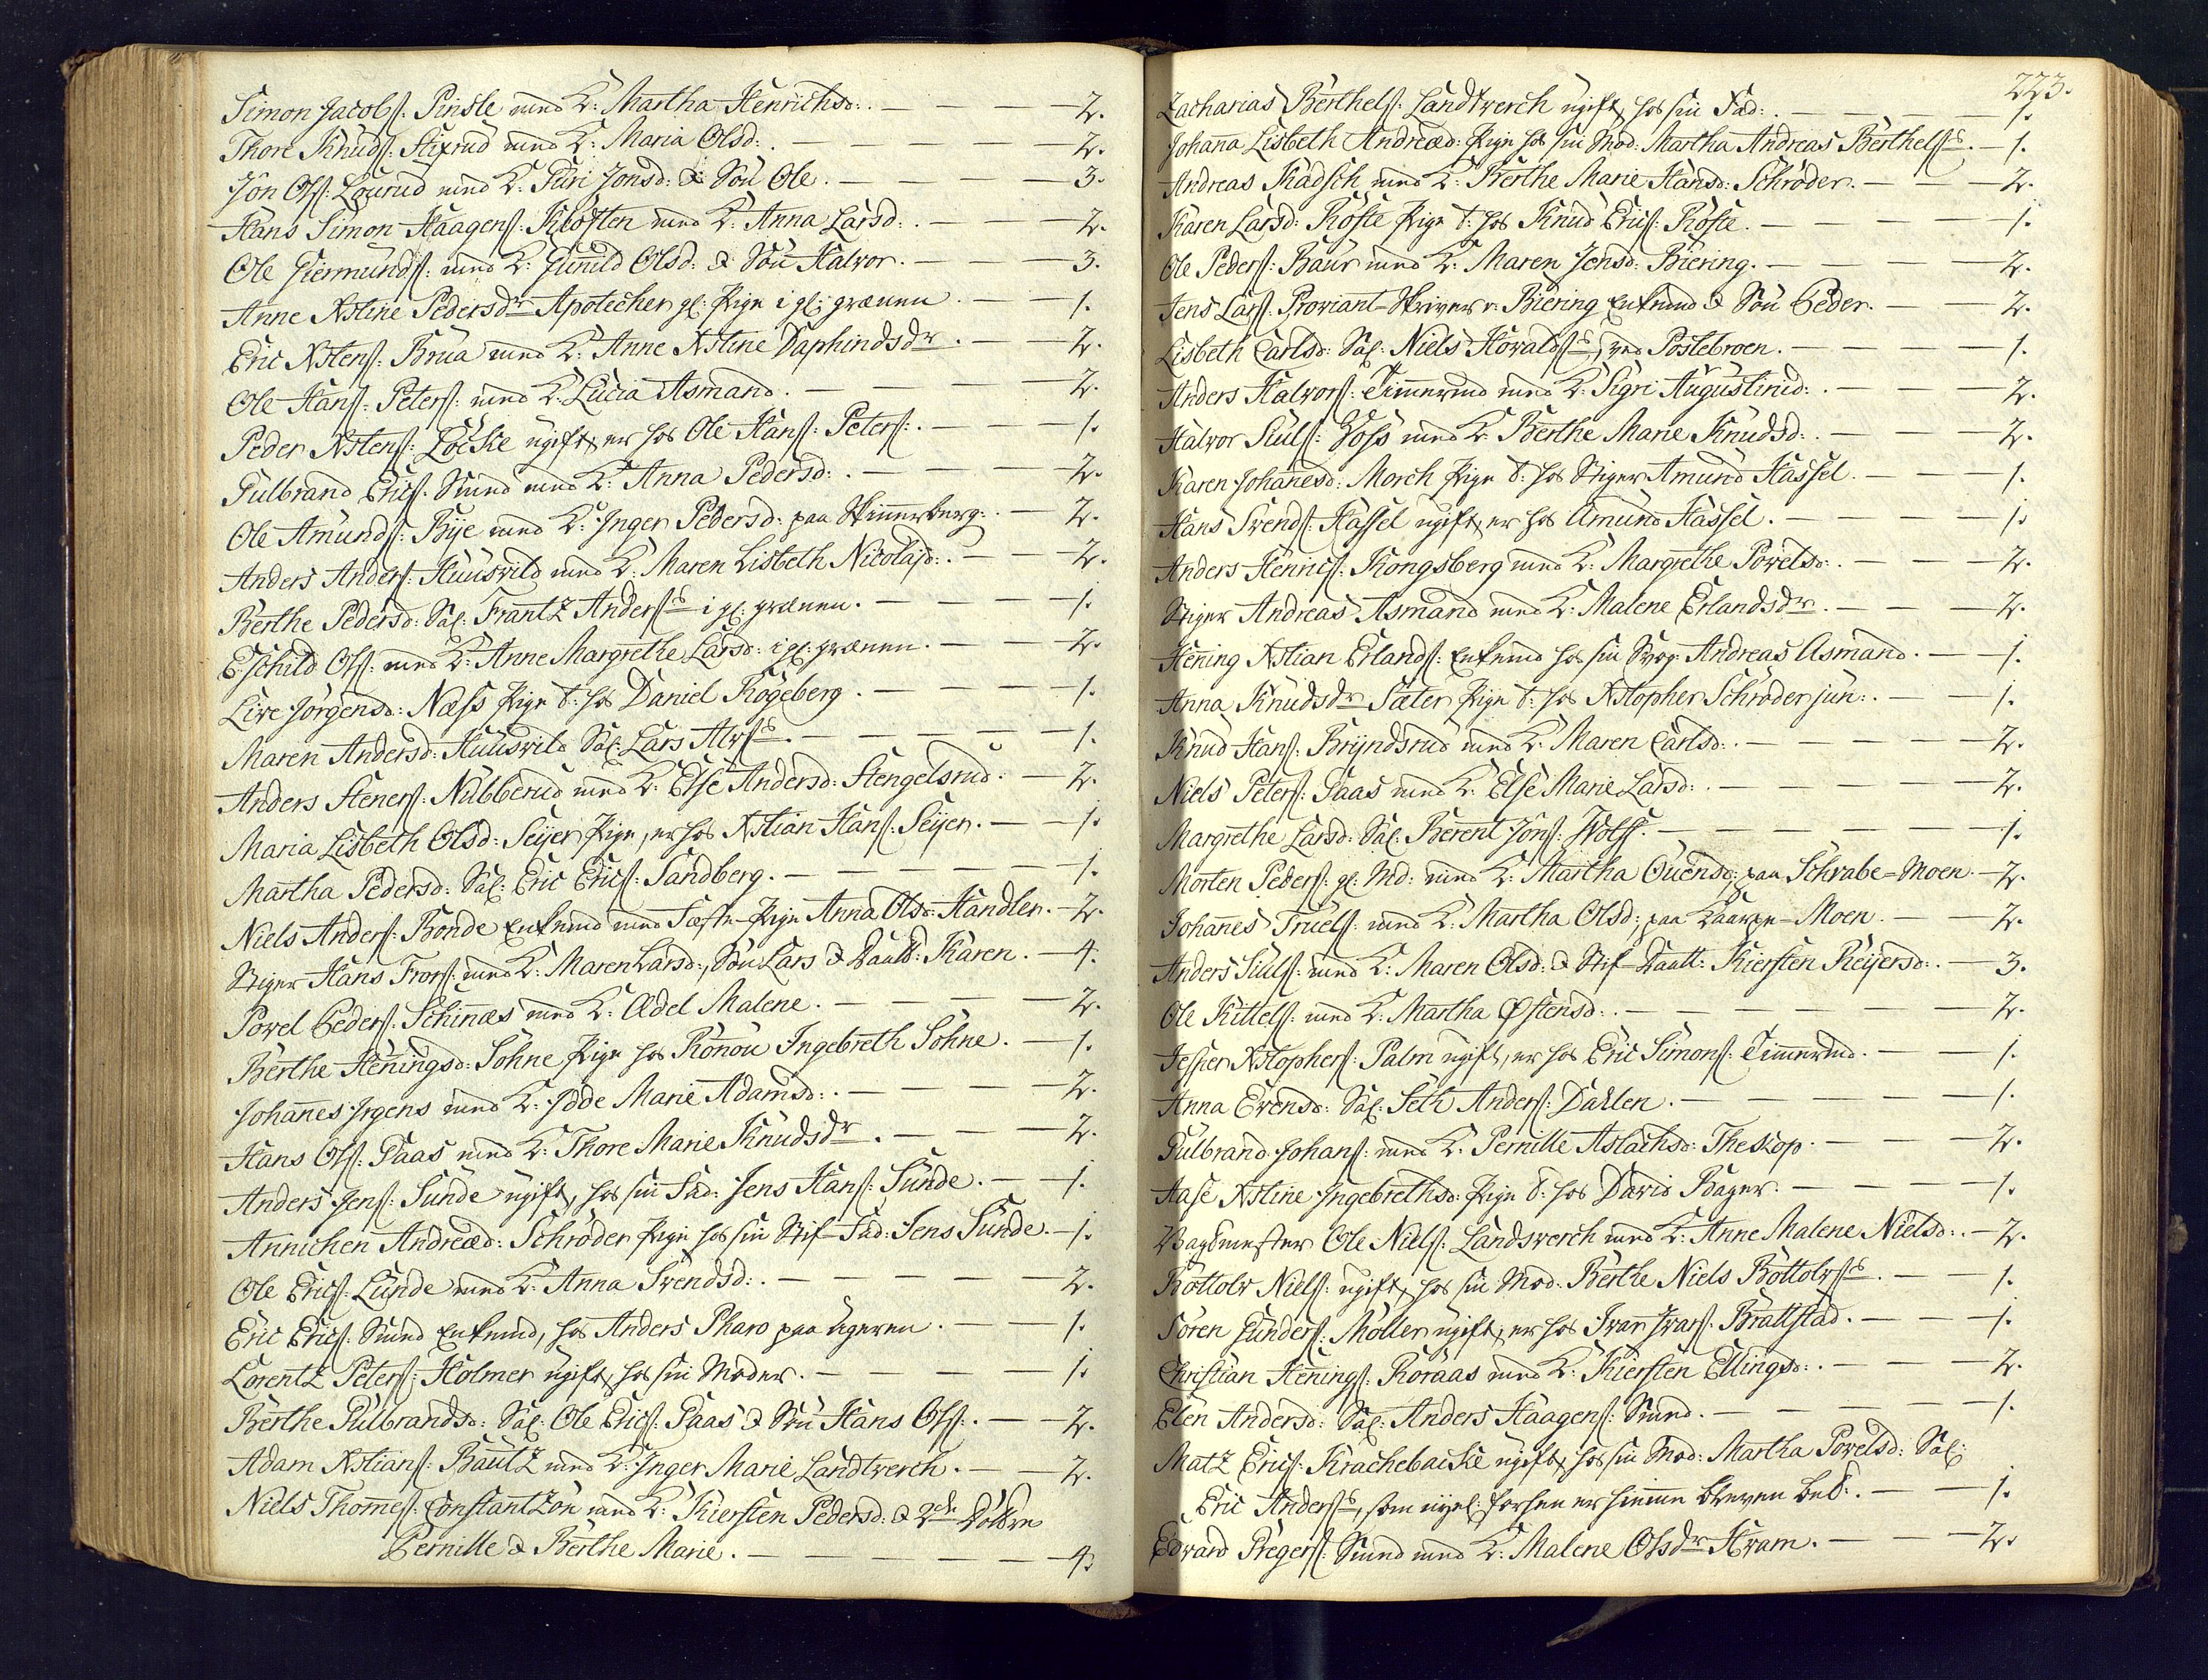 Simon Jacobs: Pinsle med K: Martha Henrichsd:. — — — — 2.
Thore Knuds: Stixrud med K: Maria Olsd:. — — — — 2.
Jon Ols: Lourud med K: Turi Jonsd: & Sön Ole. — — — 3.
Hans Simon Haagens: Klöften med K: Anna Larsd:. — — — 2.
Ole Giermunds: med K: Gunild Olsd: & Sön Halvor. — — — 3.
Anne Xstine Pedersdr Apotecher gl: Pige i gl: grænen. — — 1.
Eric Xstens: Brua med K: Anne Xstine Daphindsdr. — — 2.
Ole Hans: Peters: med K: Lucia Asmand. — — — 2.
Peder Xstens: Löcke ugift, er hos Ole Hans: Peters:. — — 1.
Gulbrand Erics: Smed med K: Anna Pedersd:. — — — 2.
Ole Amunds: Bÿe med K: Inger Pedersd: paa Skinnerberg:. — 2.
Anders Anders: Huusvild med K: Maren Lisbeth Nicolajd:. — — 2.
Berthe Pedersd: Sal: Franz Anders:s i gl: grænen. — — — 1.
Eschild Ols: med K: Anne Margrethe Larsd: i gl: grænen. — — 2.
Live Jörgensd: Næss Pige t: hos Daniel Rogeberg. — — — 1.
Maren Andersd: Huusvild Sal: Lars Alvs:s. — — — — 1.
Anders Steners: Nubberud med K: Else Andersd: Stengelsrud. — 2.
Maria Lisbeth Olsd: Seÿer Pige, er hos Xstian Hans: Seÿer. — — 1.
Martha Pedersd: Sal: Eric Erics: Sandberg. — — — — 1.
Niels Anders: Bonde Enkemd med Fæste-Pige Anna Olsd: Handler. — 2.
Stiger Hans Frors: med K: Maren Larsd:, Sön Lars & Daatt: Karen. — 4.
Povel Peders: Schinnæs med K: Ædel Malene. — — — 2.
Berthe Henningsd: Söhne Pige hos Ronnou Ingebreth Söhne. — 1.
Johannes Irgens med K: Idde Marie Adamsd:. — — — 2.
Hans Ols: Saas med K: Thore Marie Knudsdr. — — — 2.
Anders Jens: Sunde ugift, hos sin Fad: Jens Hans: Sunde. — — 1.
Annichen Andread: Schröder Pige hos sin Stif-Fad: Jens Sunde. — 1.
Ole Erics: Lunde med K: Anna Svendsd:. — — — — 2.
Eric Erics: Smed Enkemd, hos Anders Pharo paa Ageren. — — 1.
Lorentz Peters: Holmer ugift, hos sin Moder. — — — — 1.
Berthe Gulbrandsd: Sal: Ole Erics: Saas & Sön Hans Ols:. — — 2.
Adam Xstians: Bautz med K: Inger Marie Landtverch. — — 2.
Niels Thommes: Constantzon med K: Kiersten Pedersd: & 2de Döttre
Pernille & Berthe Marie. — — — — — 4.
223.
Zacharias Berthels: Landtverch ugift, hos sin Fad:. — — — 1.
Johanna Lisbeth Andread: Pige hos sin Mod: Martha Andreas Berthels:s. — 1.
Andreas Kadsch med K: Berthe Marie Hansd: Schröder. — — — 2.
Karen Larsd: Röste Pige t: hos Knud Erics: Röste. — — — — 1.
Ole Peders: Baur med K: Maren Jensd: Biering. — — — 2.
Jens Lars: Proviant-Skriver v. Biering Enkemd & Sön Peder. — — 2.
Lisbeth Carlsd: Sal: Niels Hovalds:s, ved Postebroen. — — — 1.
Anders Halvors: Timmermd med K: Sigri Augustinid:. — — — 2.
Halvor Siuls: Voss med K: Berthe Marie Knudsd:. — — — 2.
Karen Johannesd: Morch Pige t: hos Stiger Amund Hassel. — — 1.
Hans Svends: Hassel ugift, er hos Amund Hassel. — — — 1.
Anders Henrics: Kongsberg med K: Margrethe Povelsd:. — — — 2.
Stiger Andreas Asmand med K: Malene Erlandsdr. — — — 2.
Henning Xstian Erlands: Enkemd hos sin Svog: Andreas Asmand. — 1.
Anna Knudsdr Sæter Pige t: hos Xstopher Schröder jun:. — — — 1.
Knud Hans: Brÿndsrud med K: Maren Carlsd:. — — — — 2.
Niels Peters: Saas med K: Else Marie Larsd:. — — — — 2.
Margrethe Larsd: Sal: Berent Jöns: Wolff. — — — — — 1.
Morten Peders: gl: Md: med K: Martha Ouensd: paa Schrabe-Moen. — 2.
Johannes Truels: med K: Martha Olsd:, paa Kaarpe-Moen. — — 2.
Anders Siuls: med K: Maren Olsd: & Stif-Daatt: Kiersten Reÿersd:. — 3.
Ole Kittels: med K: Martha Østensd:. — — — — — 2.
Jesper Xstophers: Palm ugift, er hos Eric Simons: Timmermd. — — 1.
Anna Evensd: Sal: Seth Anders: Dahlen. — — — — 1.
Gulbrand Johans: med K: Pernille Aslachsd: Theskop. — — — 2.
Aase Xstine Ingebrethsd: Pige t: hos David Bager. — — — 1.
Vagtmester Ole Niels: Landsverch med K: Anne Malene Nielsd:. — 2.
Bottolv Niels: ugift, hos sin Mod: Berthe Niels Bottolvs:s. — — 1.
Sören Gunders: Möller ugift, er hos Ivar Ivars: Brattstad. — — 1.
Christian Hennings: Roraas med K: Kiersten Ellingsd:. — — — 2.
Elen Andersd: Sal: Anders Haagens: Smed. — — — — 1.
Matz Erics: Krachebacke ugift, hos sin Mod: Martha Povelsd: Sal:
Eric Anders:s, som forhen er bleven — — 1.
Edvard Pregers: Smed med K: Malene Olsdr Hvam. — — — 2.